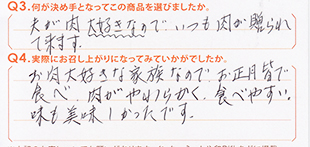 Q3.何が決め手となってこの商品を選びましたか。
夫が肉大好きなので いつも肉が贈られ
て来ます。
Q4.実際にお召し上がりになってみていかがでしたか。
お肉大好きな家族なのでお正月皆で
食べ、肉がやわらかく、食べやすい。
味も美味しかったです。